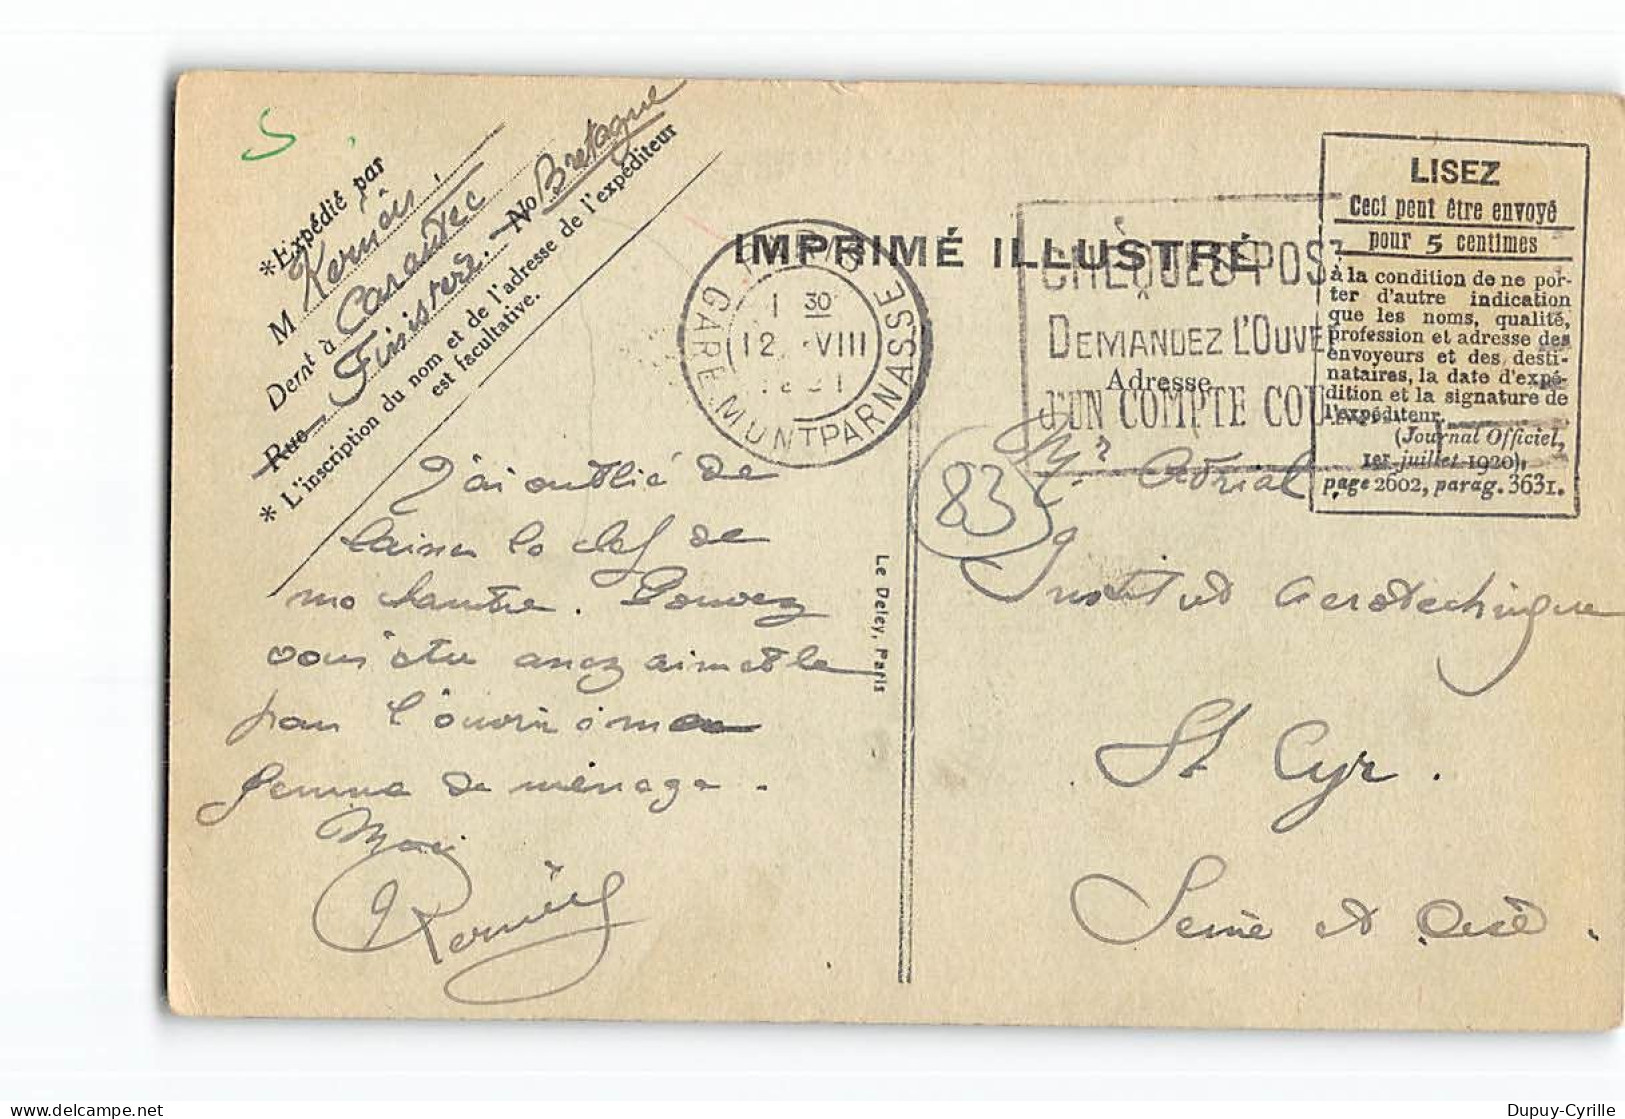 S
*Expédié par
M Kernéis
Demt à Carantec
Finistère. No Bretagne
Rue
* L'inscription du nom et de l'adresse de l'expéditeur
est facultative.
IMPRIMÉ ILLUSTRÉ
GARE MONTPARNASSE
1 30
12 VIII
CHÈQUES POST
DEMANDEZ L'OUVE
D'UN COMPTE COU
LISEZ
Ceci peut être envoyé
pour 5 centimes
à la condition de ne por-
ter d'autre indication
que les noms, qualité,
profession et adresse des
envoyeurs et des desti-
nataires, la date d'expé-
dition et la signature de
l'expéditeur.
(Journal Officiel,
1er juillet 1920),
page 2602, parag. 3631.
Adresse
83
Mr Adrial
Institut aerotechnique
St Cyr.
Seine et Oise.
J'ai oublié de
laisser la clef de
ma chambre. Pouvez
vous être assez aimable
pour l'ouvrir à ma
femme de ménage.
Merci
Kernéis
Le Deley, Paris
Dupuy-Cyrille